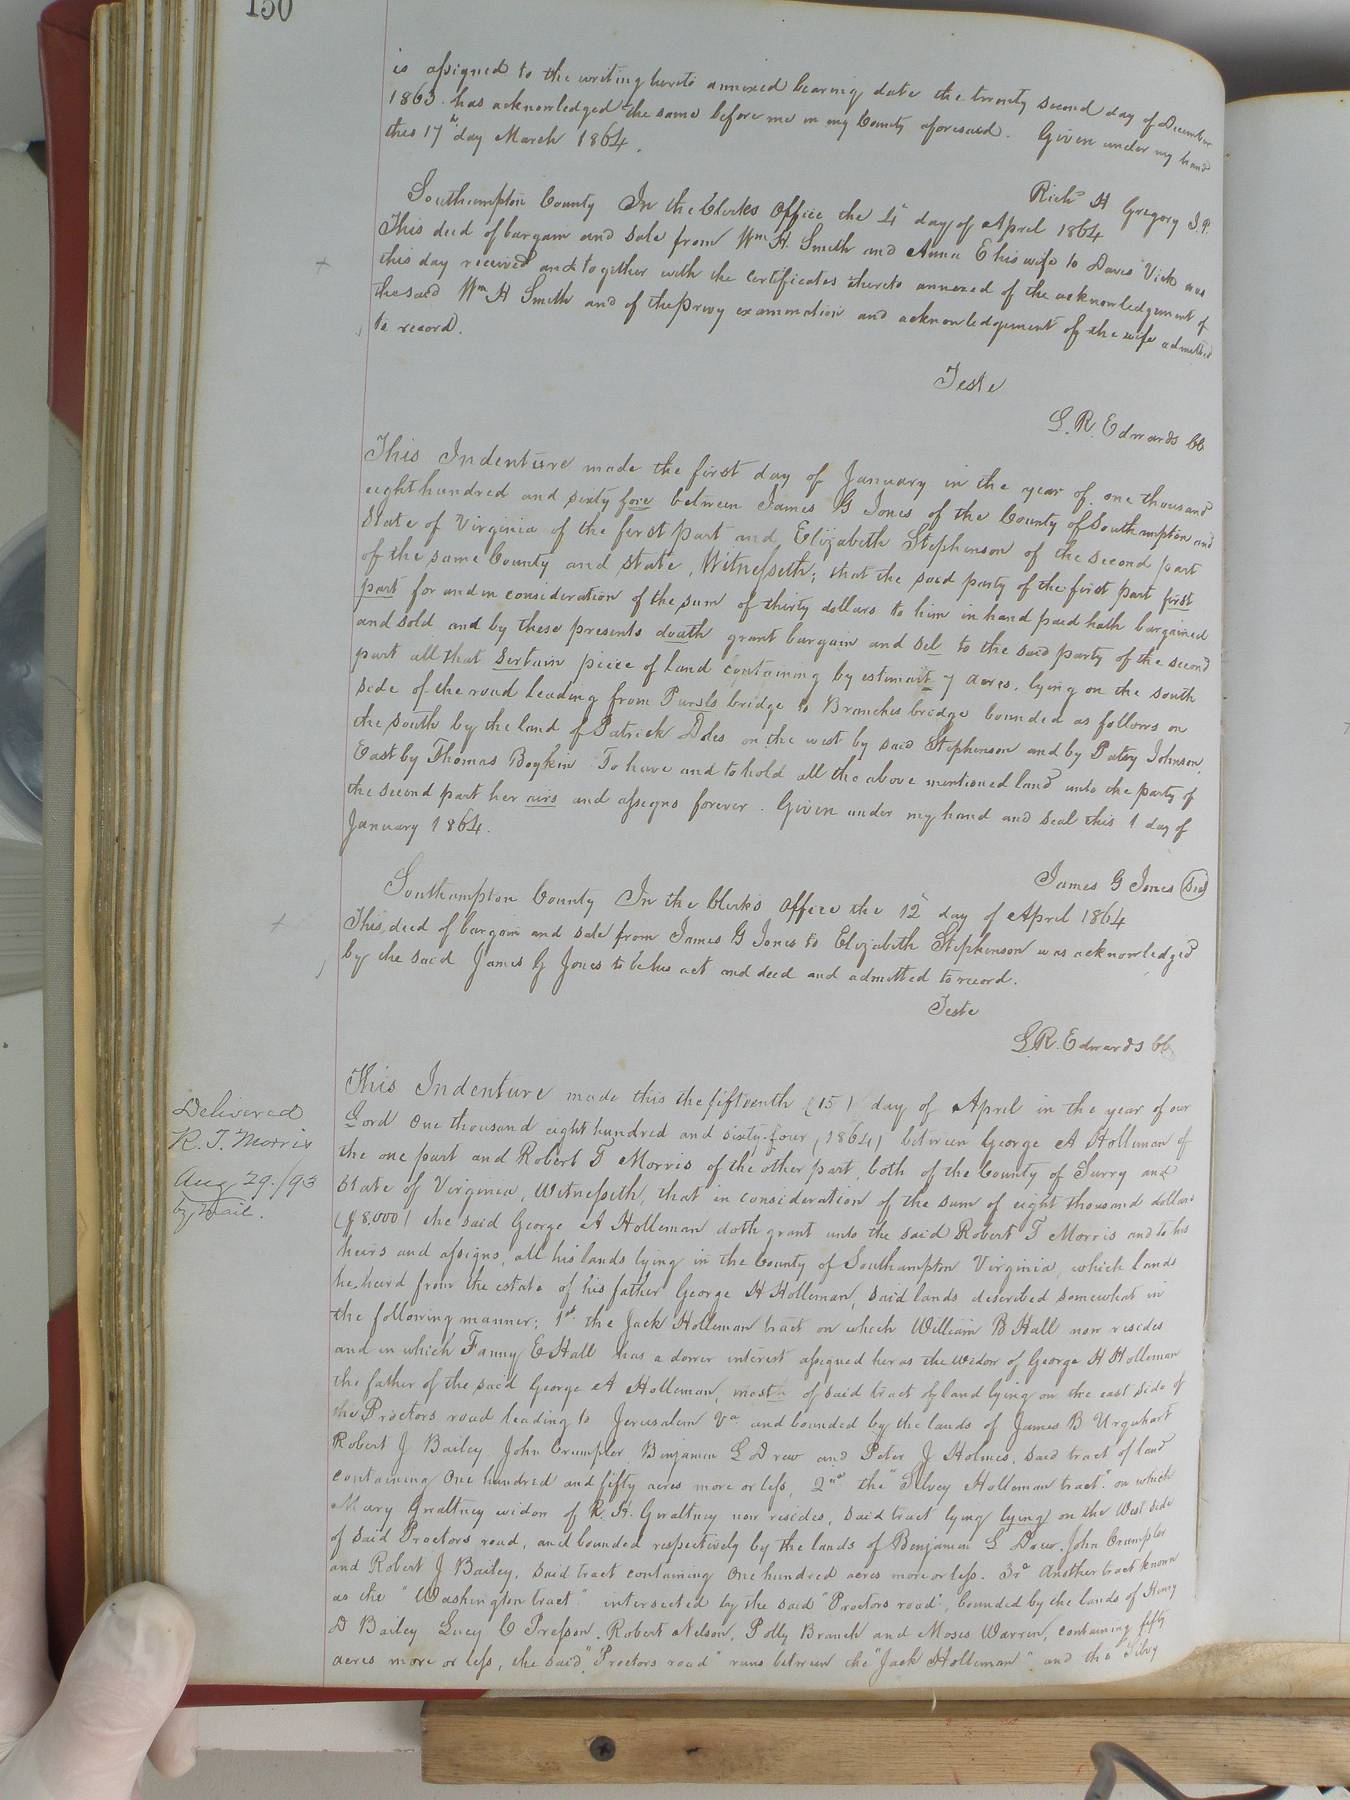 150
is assigned to the writing hereto annexed bearing date the twenty second day of December
1863 has acknowledged the same before me in my County aforesaid. Given under my hand
this 17th day March 1864.
Richd H Gregory J.P.
Southampton County In the Clerks Office the 4th day of April 1864
This deed of bargain and sale from Wm H. Smith and Anna E his wife to Davis Vick was
this day received and together with the certificates thereto annexed of the acknowledgement of
the said Wm H Smith and of the privy examination and acknowledgement of the wife admitted
to record.
Teste
L. R. Edwards CC
This Indenture made the first day of January in the year of one thousand
eight hundred and sixty fore between James G Jones of the County of Southampton and
State of Virginia of the first part and Elizabeth Stephenson of the second part
of the same County and State, Witnesseth; that the said party of the first part first
part for and in consideration of the sum of thirty dollars to him in hand paid hath bargained
and sold and by these presents douth grant bargain and sel to the said party of the second
part all that sertain piece of land containing by estimait 7 acres, lying on the south
side of the road leading from Pursls bridge to Branches bridge bounded as follows on
the south by the land of Patrick Doles on the west by said Stephenson and by Patsy Johnson,
East by Thomas Boykin To have and to hold all the above mentioned land unto the party of
the second part her airs and assigns forever. Given under my hand and seal this 1 day of
January 1864.
James G Jones Seal
Southampton County In the Clerks Office the 12th day of April 1864
This deed of bargain and sale from James G Jones to Elizabeth Stephenson was acknowledged
by the said James G Jones to be his act and deed and admitted to record.
Teste
L. R. Edwards CC
Delivered
R. T. Morris
Aug 29./93
by mail.
This Indenture made this the fifteenth (15) day of April in the year of our
Lord One thousand eight hundred and sixty-four (1864) between George A Holleman of
the one part and Robert T Morris of the other part, both of the County of Surry and
State of Virginia, Witnesseth, that in consideration of the sum of eight thousand dollars
($8,000) the said George A Holleman doth grant unto the said Robert T Morris and to his
heirs and assigns, all his lands lying in the County of Southampton Virginia, which lands
he heard from the estate of his father George H Holleman, said lands described somewhat in
the following manner; 1st the Jack Holleman tract on which William B Hall now resides
and in which Fanny E Hall has a dower interest assigned her as the widow of George H Holleman
the father of the said George A Holleman, most of said tract of land lying on the east side of
the Proctors road leading to Jerusalem Va and bounded by the lands of James B Urquhart
Robert J Bailey John Crumpler Benjamin L Drew and Peter J Holmes, said tract of land
containing One hundred and fifty acres more or less, 2nd the "Silvey Holleman tract" on which
Mary Gwaltney widow of R. H. Gwaltney now resides, said tract lying lying on the West side
of said Proctors road, and bounded respectively by the lands of Benjamin L Drew. John Crumpler
and Robert J Bailey, said tract containing One hundred acres more or less. 3rd Another tract known
as the "Washington tract" intersected by the said "Proctors road", bounded by the lands of Henry
D Bailey Lucy C Presson. Robert Nelson, Polly Branch and Moses Warren, containing fifty
acres more or less, the said "Proctors road" runs between the "Jack Holleman" and the "Silvy